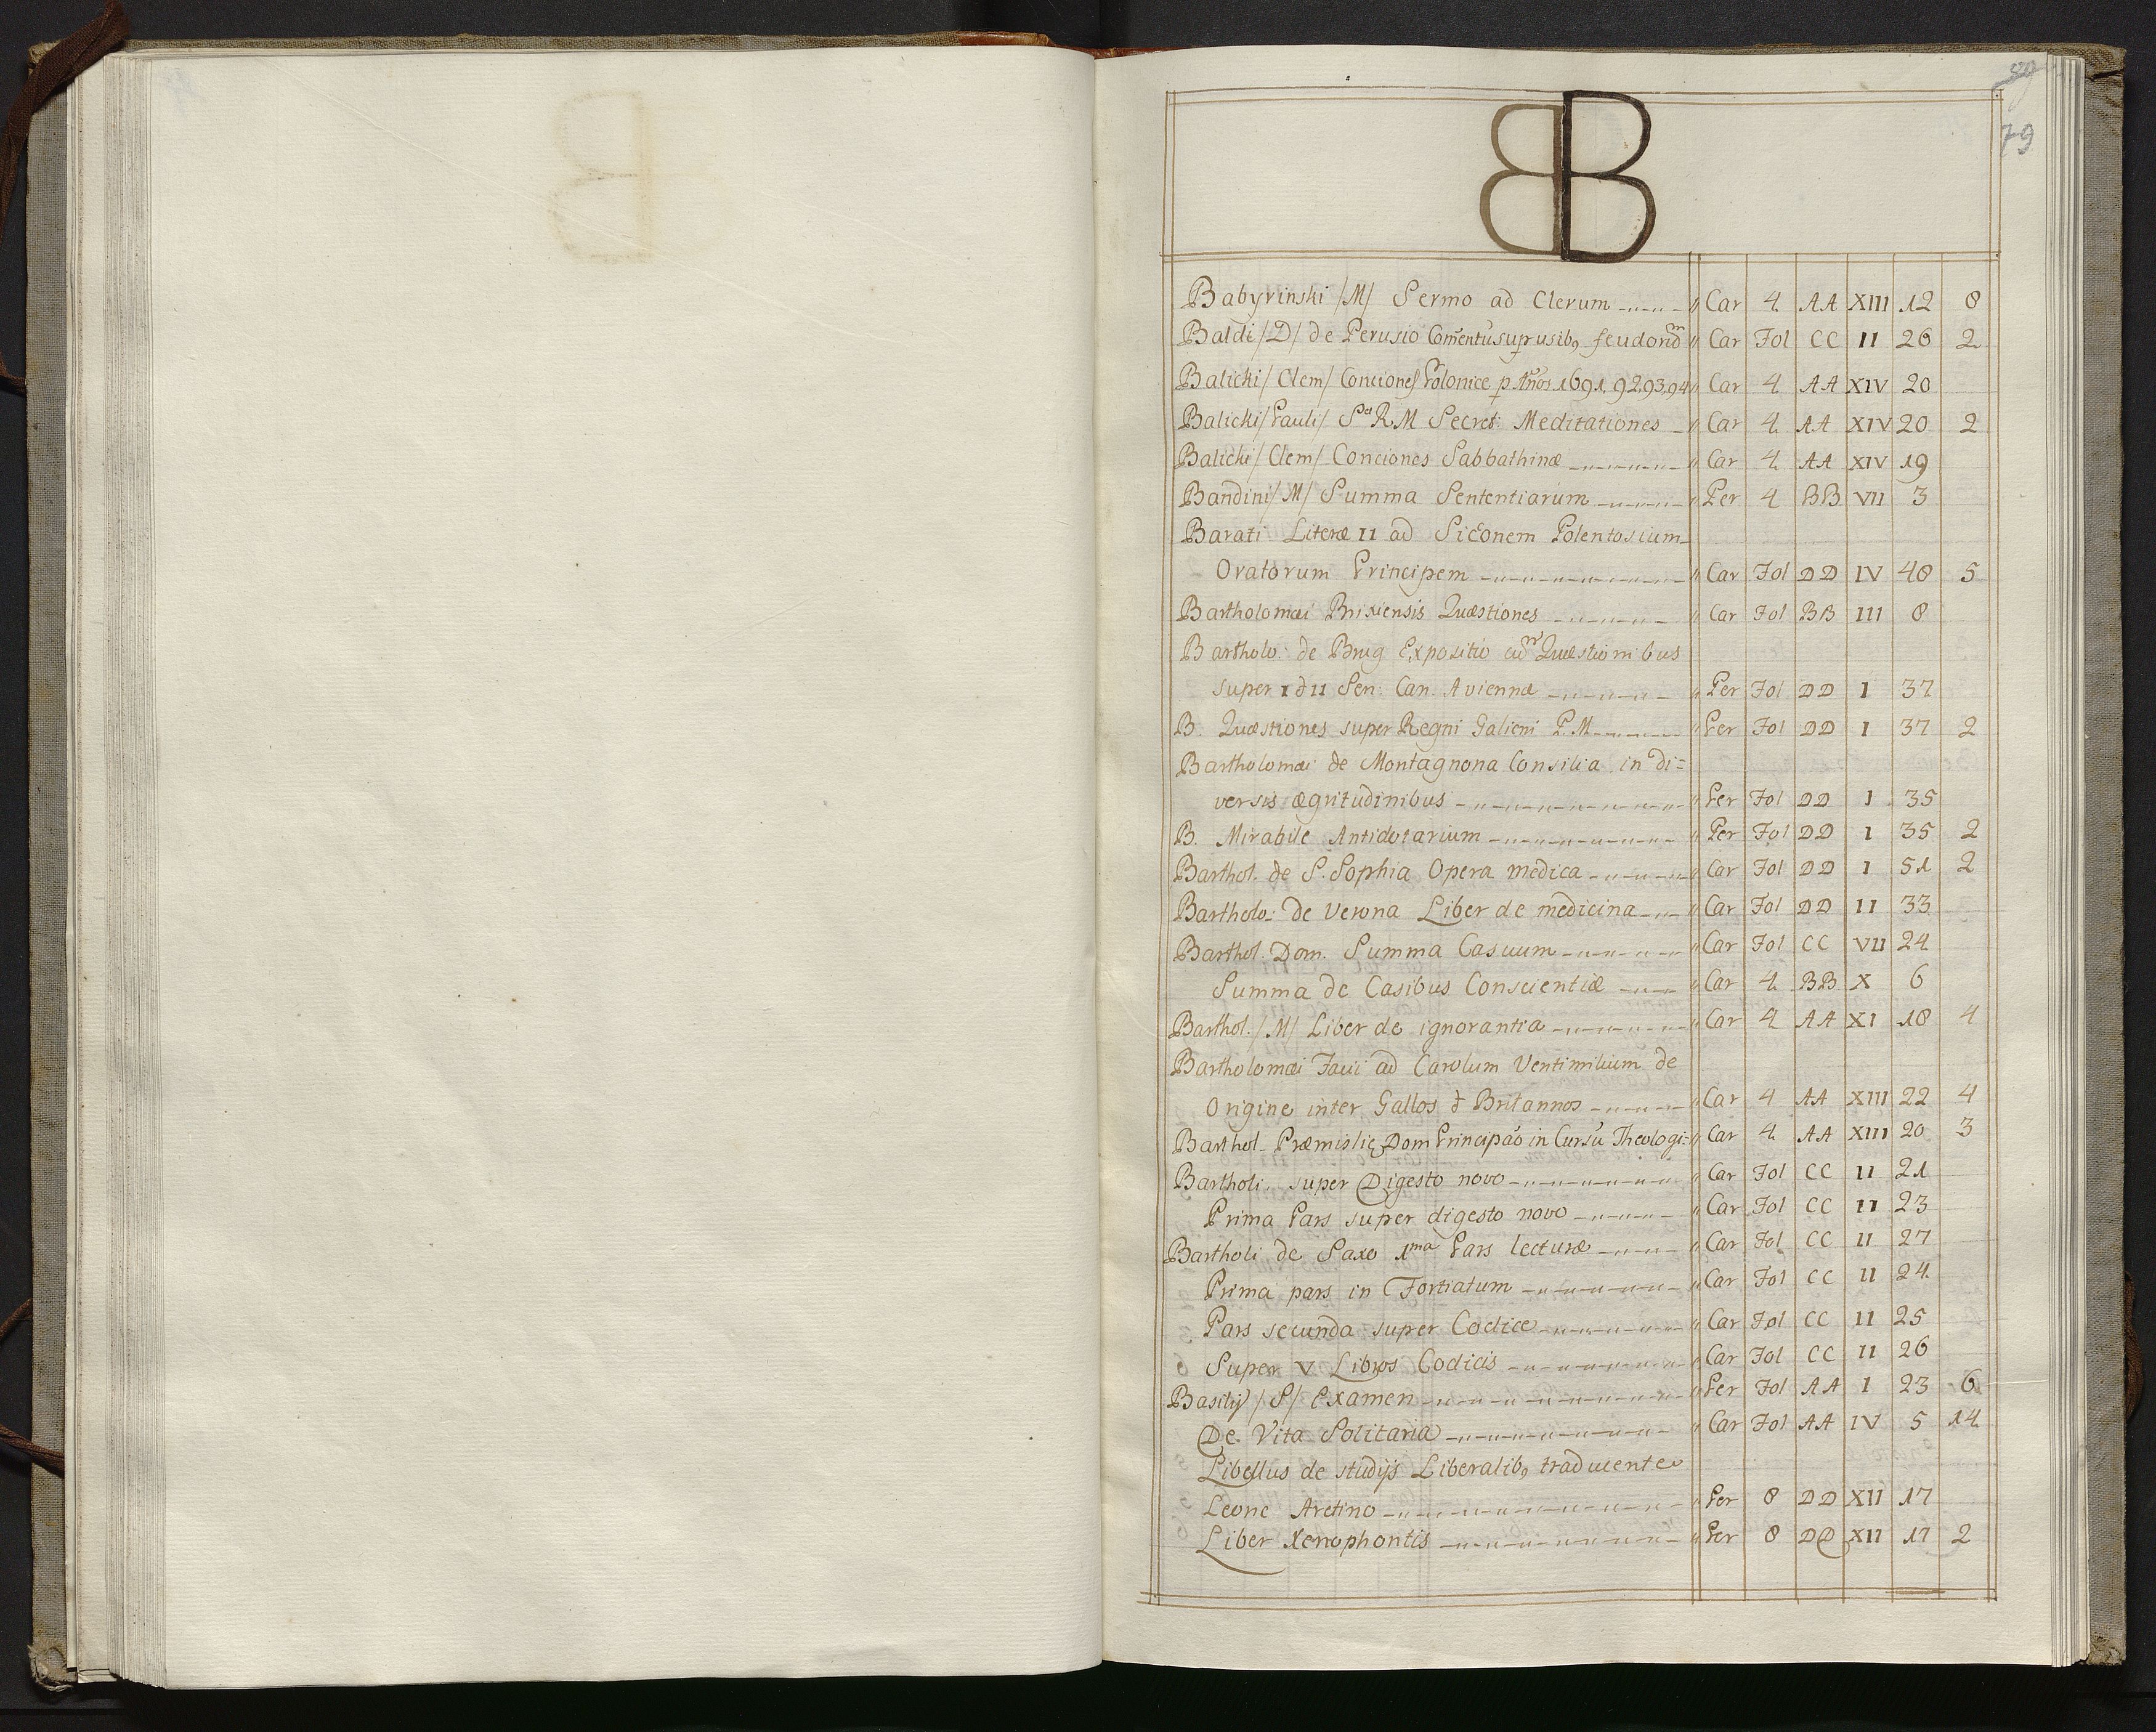 79
79
B
Babyrinski /M/ Sermo ad Clerum " Car 4 AA XIII 12 8
Baldi /D/ de Perusio Com̃entu sup usib9 feudorũ " Car Fol CC II 26 2
Balicki /Clem/ Conciones Polonice p Años 1691, 92, 93, 94 " Car 4 AA XIV 20
Balicki /Pauli/ S R M Secret: Meditationes " Car 4 AA XIV 20 2
Balicki /Clem/ Conciones Sabbathinæ " Car 4 AA XIV 19
Bandini /M/ Summa Sententiarum " Per 4 BB VII 3
Barati Literæ II ad Siconem Polentosium
Oratorum Principem " Car Fol DD IV 48 5
Bartholomæi Brixiensis Quæstiones " Car Fol BB III 8
Bartholo: de Brug Expositio cũ Quæstionibus
super I & II Sen: Can. Aviennæ " Per Fol DD I 37
B. Quæstiones super Regni Galieni P. M. " Per Fol DD I 37 2
Bartholomæi de Montagnona Consilia in di=
versis ægritudinibus " Per Fol DD I 35
B. Mirabile Antidotarium " Per Fol DD I 35 2
Barthol. de S. Sophia Opera medica " Car Fol DD I 51 2
Bartholo: de Verona Liber de medicina " Car Fol DD II 33
Barthol. Dom. Summa Casuum " Car Fol CC VII 24
Summa de Casibus Conscientiæ " Car 4 BB X 6
Barthol. /M/ Liber de ignorantia " Car 4 AA XI 18 4
Bartholomæi Facii ad Carolum Ventimilium de
Origine inter Gallos & Britannos " Car 4 AA XIII 22 4
Barthol. Præmislię Dom Principão in Cursu Theologi: " Car 4 AA XIII 20 3
Bartholi super Digesto novo " Car Fol CC II 21
Prima Pars super digesto novo " Car Fol CC II 23
Bartholi de Saxo 1ma Pars lecturæ " Car Fol CC II 27
Prima pars in Fortiatum " Car Fol CC II 24
Pars secunda super Codice " Car Fol CC II 25
Super V Libros Codicis " Car Fol CC II 26
Basilij /S/ Examen " Per Fol AA I 23 6
De Vita Solitaria " Car Fol AA IV 5 14
Libellus de studijs Liberalib9 traducente
Leone Aretino " Per 8 DD XII 17
Liber Xenophontis " Per 8 DD XII 17 2